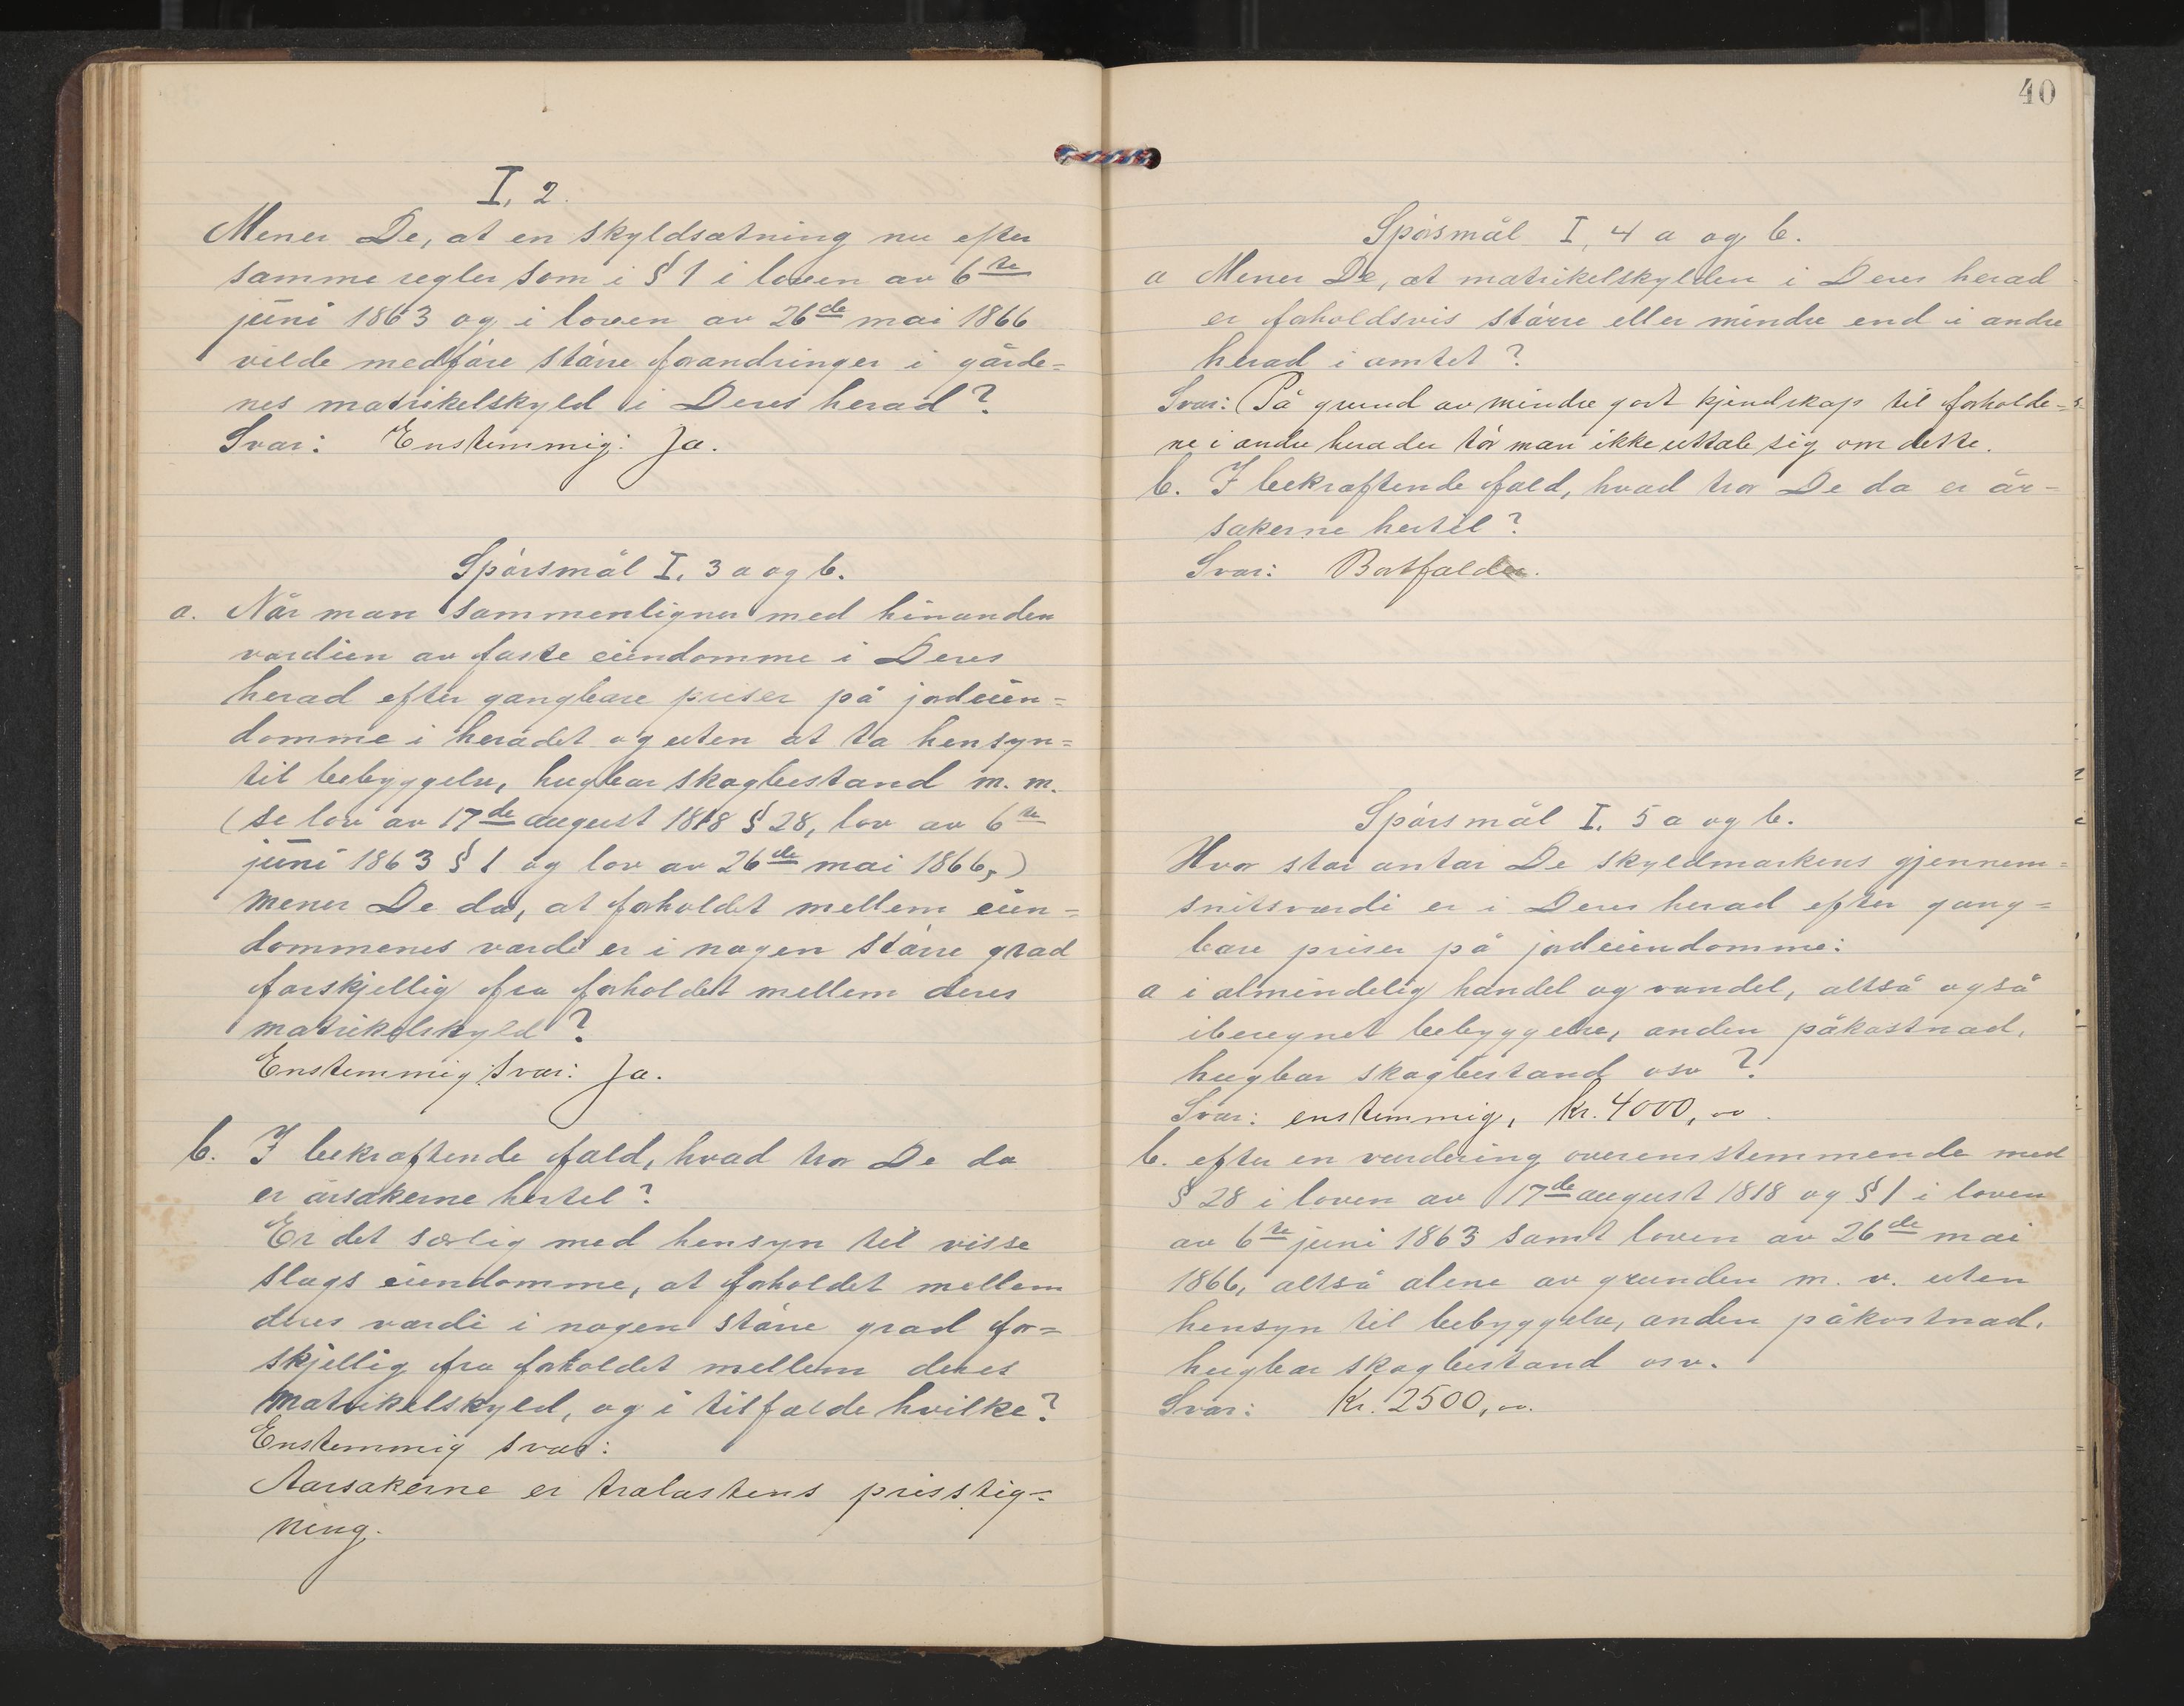 I, 2.
Mener De, at en skyldsætning nu efter
samme regler som i § 1 i loven av 6te
juni 1863 og i loven av 26de mai 1866
vilde medføre større forandringer i gårde=
nes matrikelskyld i Deres herad?
Svar: Enstemmig: Ja.
Spörsmål I. 3 a og b.
a. Når man sammenligner med hinanden
værdien av faste eiendomme i Deres
herad efter gangbare priser på jordeien=
domme i heradet og uten at ta hensyn=
til bebyggelse, hugbar skogbestand m. m.
(se lov av 17de august 1818 § 28, lov av 6te
juni 1863 § 1 og lov av 26de mai 1866,)
mener De da, at forholdet mellem eien=
dommenes værdi er i nogen större grad
forskjellig fra forholdet mellem deres
matrikelskyld?
Enstemmig Svar: Ja.
b. I bekræftende fald, hvad tror De da
er årsakerne hertil?
Er det særlig med hensyn til visse
slags eiendomme, at forholdet mellem
deres værdi i nogen större grad for=
skjellig fra forholdet mellem deres
matrikelskyld, og i tilfælde hvilke?
Enstemmig svar:
Aarsakerne er trælastens prisstig=
ning.
40
Spörsmål I, 4 a og b.
a Mener De, at matrikelskylden i Deres herad
er forholdsvis större eller mindre end i andre
herad i amtet?
Svar: På grund av mindre godt kjendskap til forholde=
ne i andre herader tör man ikke uttale sig om dette.
b. I bekræftende fald, hvad tror De da er år=
sakerne hertil?
Svar: Bortfalder.
Spörsmål I. 5 a og b.
Hvor stor antar De skyldmarkens gjennem=
snitsværdi er i Deres herad efter gang=
bare priser på jordeiendomme:
a i almindelig handel og vandel, altså også
iberegnet bebyggelse, anden påkostnad,
hugbar skogbestand osv?
Svar: enstemmig, Kr. 4000,00.
b. efter en værdering overensstemmende med
§ 28 i loven av 17de august 1818 og § 1 i loven
av 6te juni 1863 samt loven av 26de mai
1866, altså alene av grunden m. v. uten
hensyn til bebyggelse, anden påkostnad,
hugbar skogbestand osv.
Svar: Kr. 2500,00.